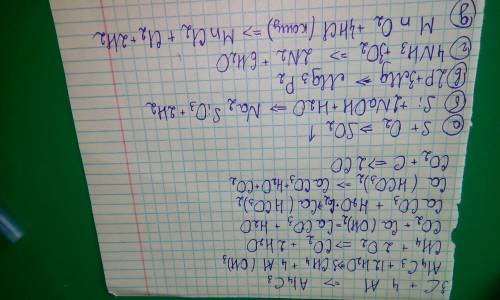 3C + 4 Al => Al₄C₃
Al₄C₃ + 12H₂O => 3CH₄ + 4 Al(OH)₃
CH₄ + 2O₂ => CO₂ + 2H₂O
CO₂ + Ca(OH)₂ = CaCO₃ + H₂O
CaCO₃ + H₂O + CO₂ = Ca(HCO₃)₂
Ca(HCO₃)₂ => CaCO₃ + H₂O + CO₂
CO₂ + C => 2CO
а) S + O₂ => SO₂ ↑
б) Si + 2NaOH + H₂O => Na₂SiO₃ + 2H₂
в) 2P + 3Mg => Mg₃P₂
г) 4NH₃ + 3O₂ => 2N₂ + 6H₂O
д) MnO₂ + 4HCl (конц) => MnCl₂ + Cl₂ + 2H₂